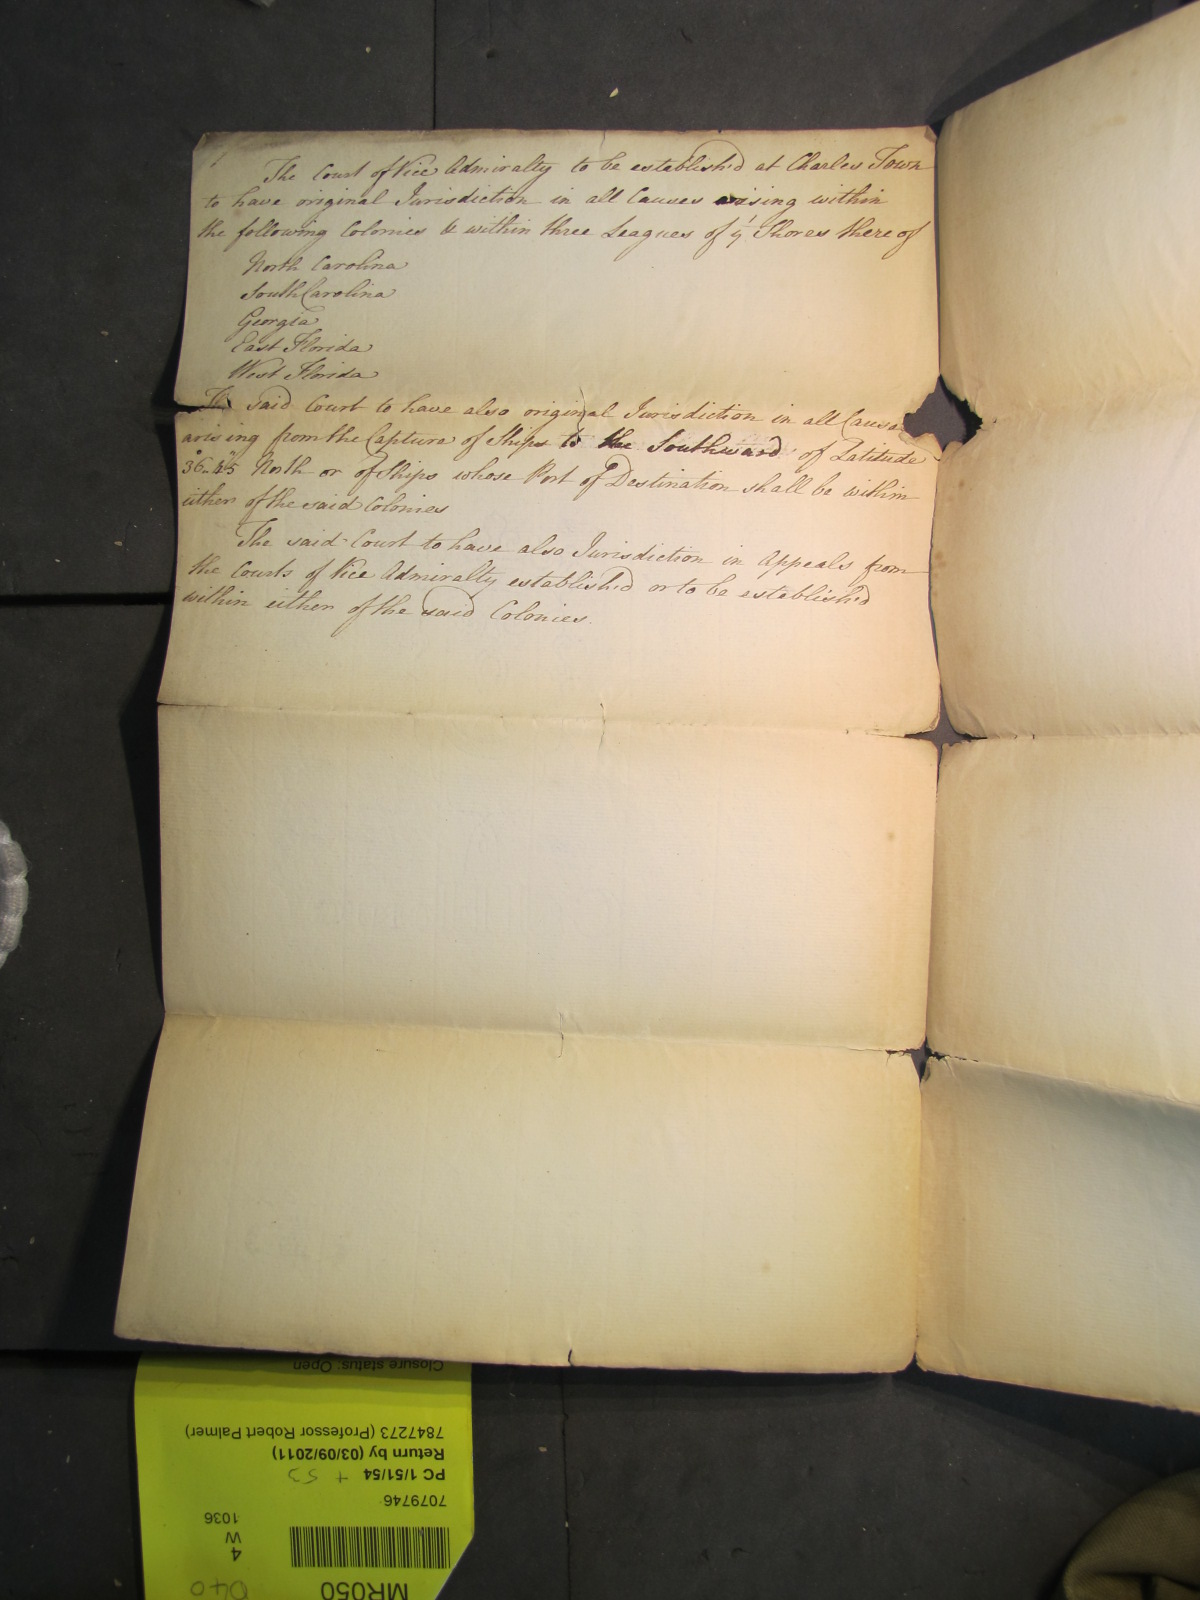 The Court of Vice Admiralty to be establish'd at Charles Town
to have original Jurisdiction in all Causes arising within
the following Colonies & within three Leagues of y Shores there of
North Carolina
South Carolina
Georgia
East Florida
West Florida
The said Court to have also original Jurisdiction in all Causes
arising from the Capture of Ships to the Southward of Latitude
36° 45 North or of Ships whose Port of Destination shall be within
either of the said Colonies
The said Court to have also Jurisdiction in Appeals from
the Courts of Vice Admiralty establish'd or to be establish'd
within either of the said Colonies.
Closure status: Open
7847273 (Professor Robert Palmer)
Return by (03/09/2011)
PC 1/51/54 + 53
7079746
1036
W
4
MR050
040